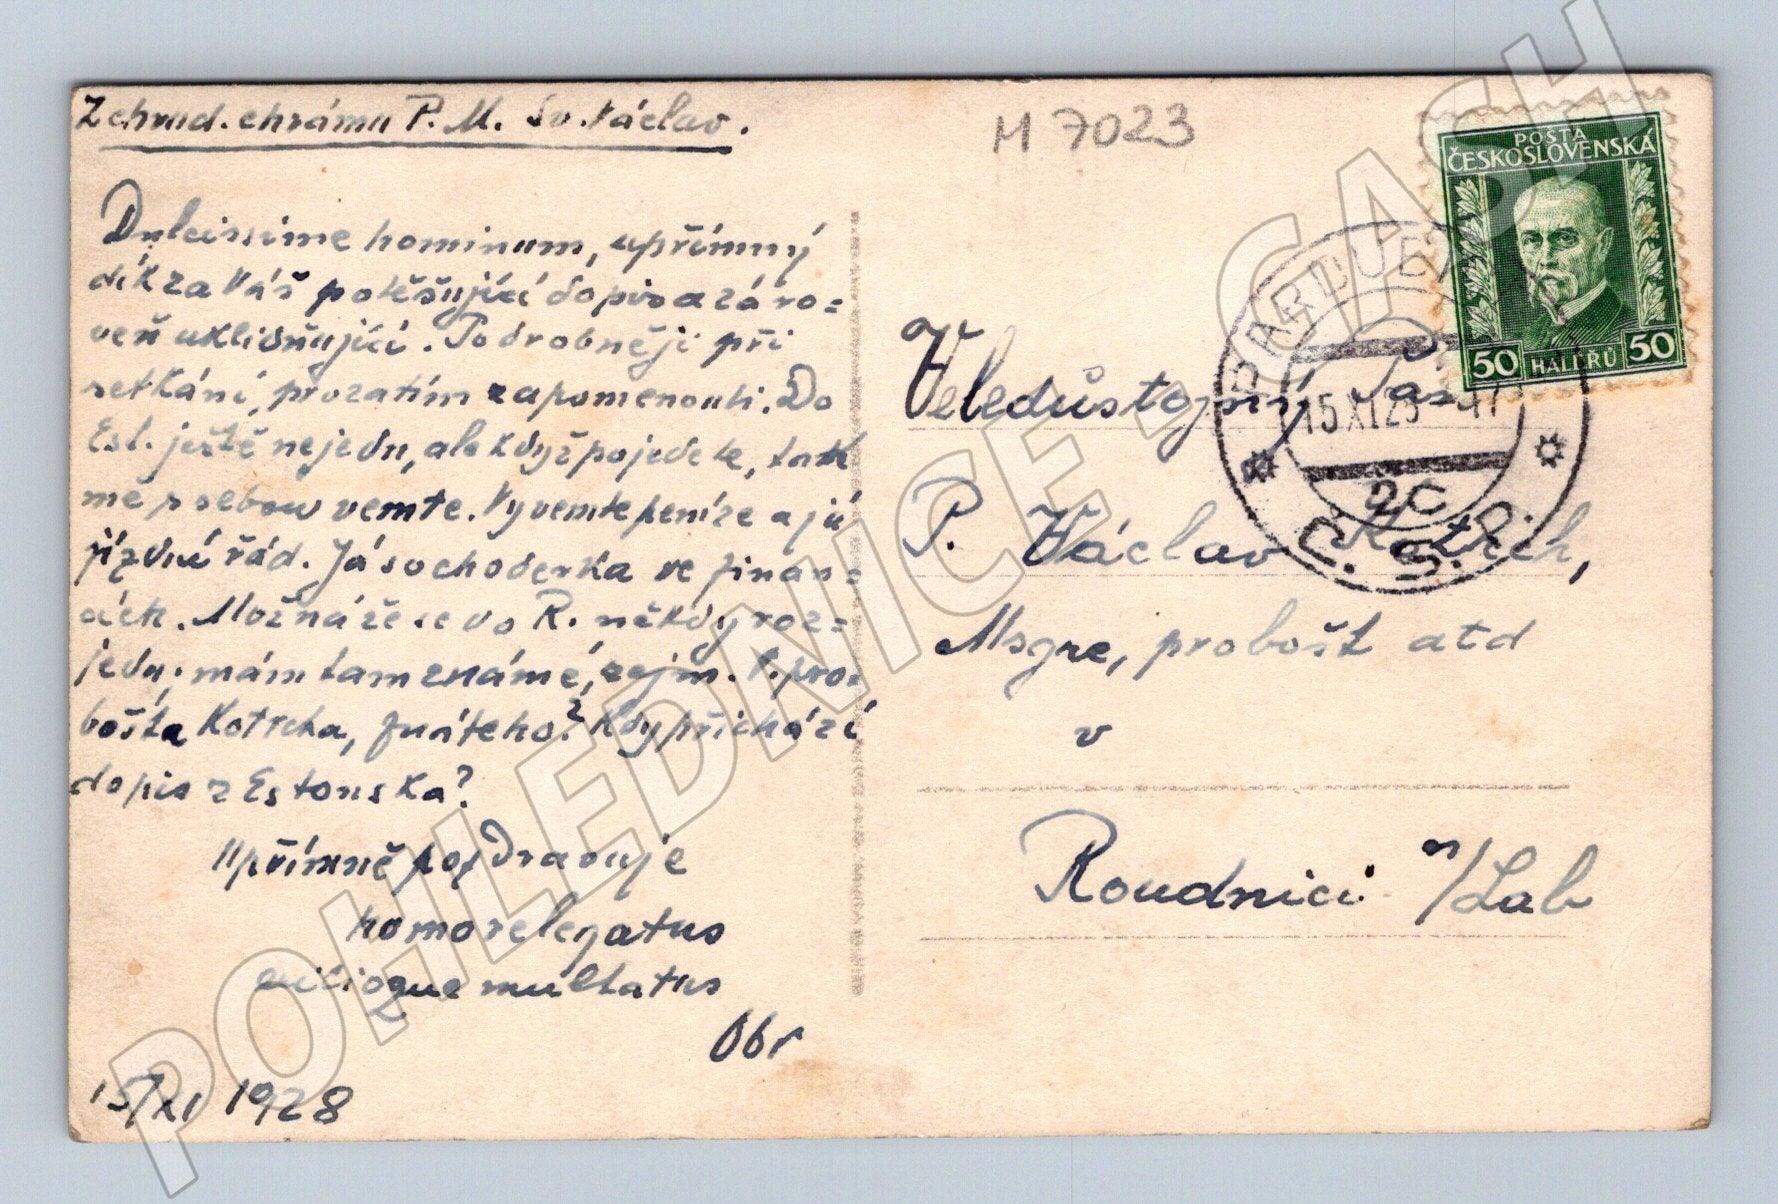 Z chrud. chrámu P. M. Sv. Václav.
Dulcissime hominum, upřímný
dík za Váš potěšující dopis a záro=
veň uklidňující. Podrobněji při
setkání, prozatím zapomenouti. Do
Est. ještě nejedu, ale když pojedete, tak
mě s sebou vemte. Vy vemte peníze a já
jízdní řád. Já suchoderka ve finan=
cích. Možná že se do R. někdy roz=
jedu; mám tam známé, zejm. P. pro=
bošta Kotrcha, znáte ho? Kdy přichází
dopis z Estonska?
Upřímně pozdravuje
homo relegatus
multatus
Obr
15/XI 1928
M 7023
POŠTA
ČESKOSLOVENSKÁ
50 HALÉŘŮ 50
PARDUBICE
15 XI 28
2c
Č. S. R.
Veledůstojný Pan
P. Václav Kotrch,
Msgre, probošt atd
v
Roudnici n/Lab
POHLEDNICE - CASH